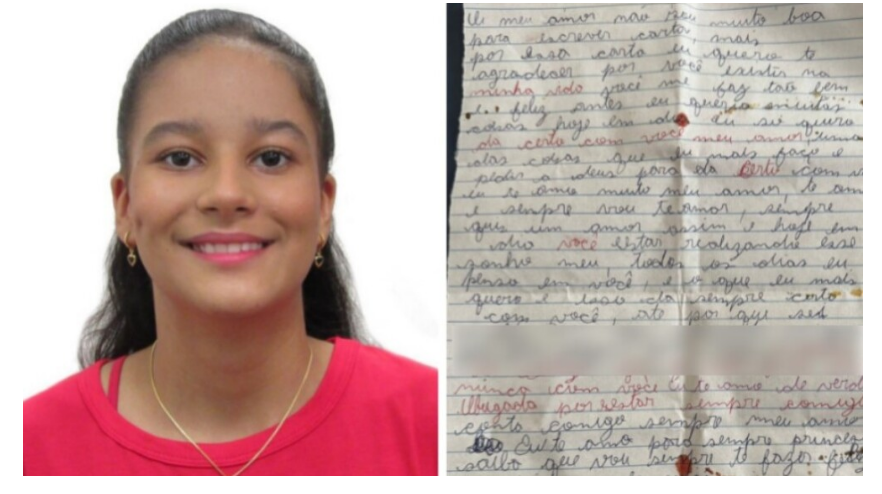 Oi meu amor não sou muito boa
para escrever carta, mais
por essa carta eu quero te
agradecer por você existir na
minha vida você me faz tão bem
e feliz antes eu queria muitas
coisas hoje em dia eu só quero
da certo com você meu amor, uma
das coisas que eu mais faço e
pedir a deus para da certo com v
eu te amo muito meu amor, te am
e sempre vou te amor, sempre
quis um amor assim e hoje em
dia você estar realizando esse
sonho meu, todos os dias eu
penso em você, e o que eu mais
quero e isso da sempre certo
com você, até por que sei
nunca com você Eu te amo de verd
Obrigada por estar sempre comigo
conta comigo sempre meu amo
Eu te amo para sempre princes
saiba que vou sempre te fazer feliz